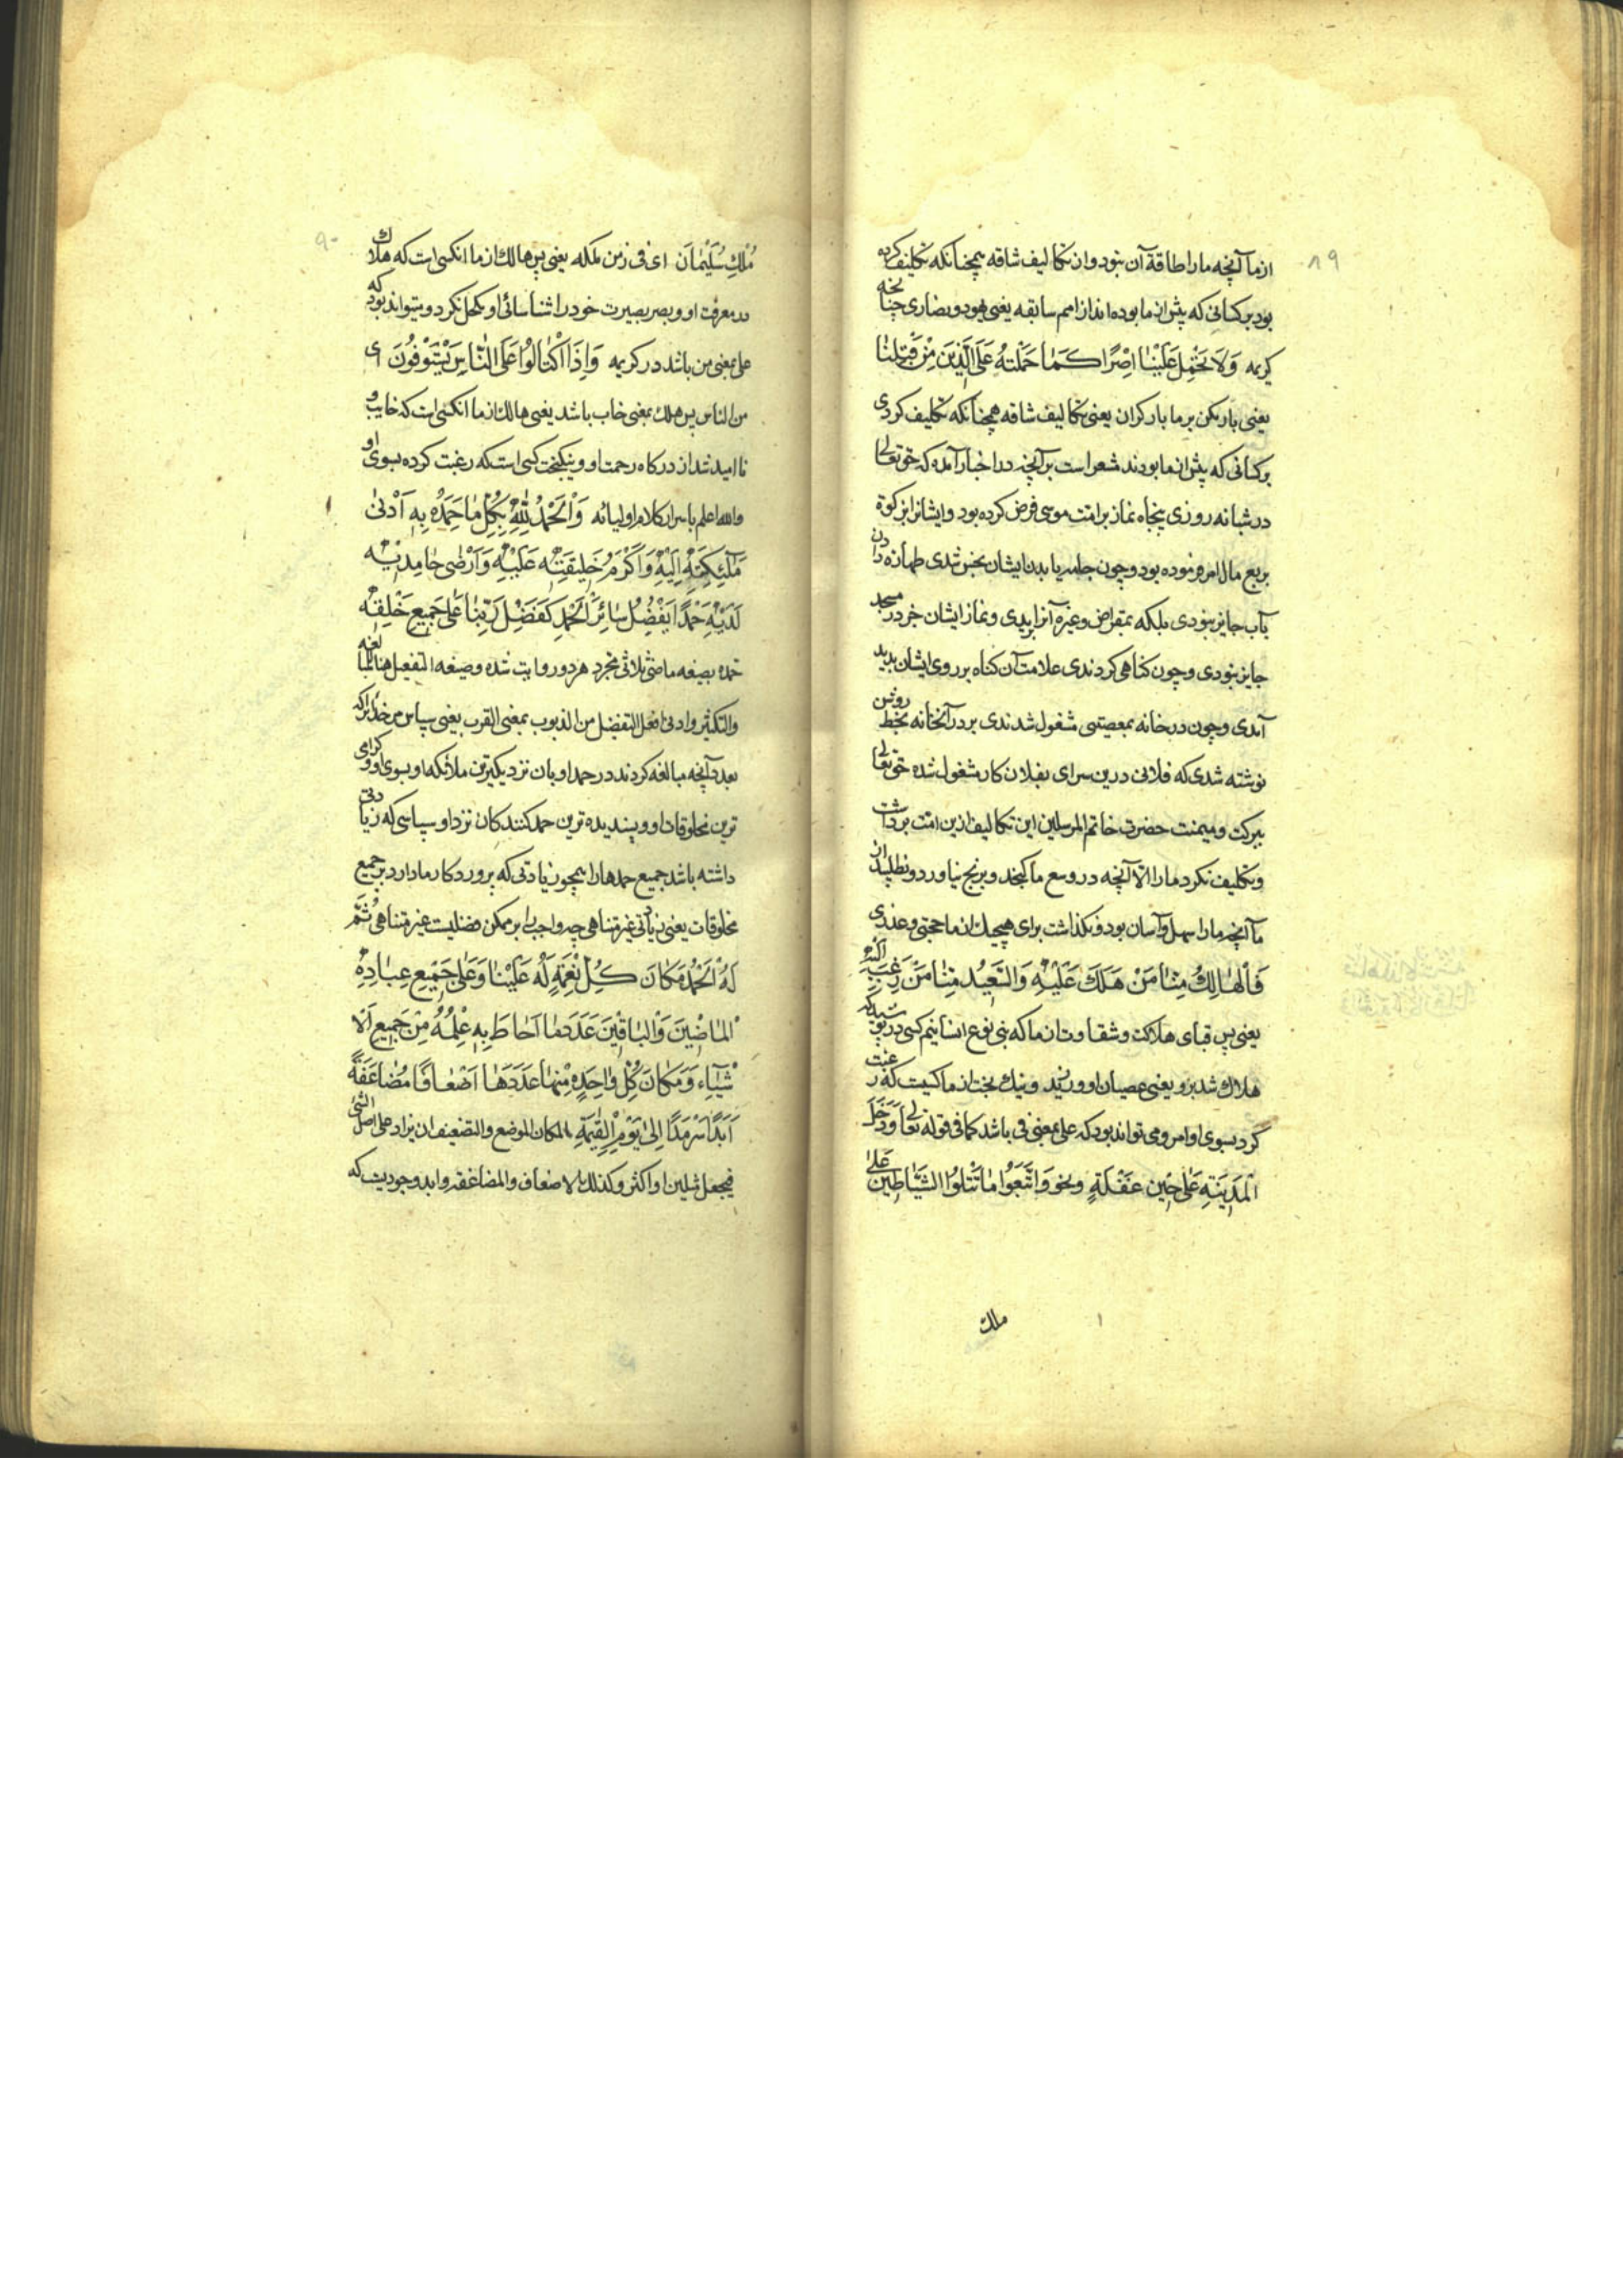 ۸۹
از ما آنچه ما را طاقة آن نبود و ان تکالیف شاقه همچنانکه تکلیف کرده
بود بر کسانی که پیش از ما بوده اند از امم سابقه یعنی یهود و نصاری چنانچه
کریمه وَلَا تَحْمِلْ عَلَیْنَا اِصْرًا کَمَا حَمَلْتَهُ عَلَی الَّذِینَ مِنْ قَبْلِنَا
یعنی بار مکن بر ما بار کران یعنی تکالیف شاقه همچنانکه تکلیف کردی
بر کسانی که پیش از ما بودند شعر است بر آنچه در اخبار آمده که حق تعالی
در شبانه روزی پنجاه نماز بر امت موسی فرض کرده بود و ایشانرا بزکوة
بربع مال امر فرموده بود و چون جامه یا بدن ایشان نجس شدی طهارة دادن
بآب جایز نبودی بلکه بمقراض و غیره آنرا بریدی و نماز ایشان جز در مسجد
جایز نبودی و چون کناهی کردندی علامت آن کناه بر روی ایشان پدید
آمدی و چون در خانه بمعصیتی مشغول شدندی بر در آنخانه بخط روشن
نوشته شدی که فلانی درین سرای بفلان کار مشغول شده حق تعالی
ببرکت و میمنت حضرت خاتم المرسلین این تکالیف ازین امت برداشت
و تکلیف نکرد ما را الّا آنچه در وسع ما کنجد و برنج نیاورد و نطلبید از
ما آنچه ما را سهل و آسان بود و نکذاشت برای هیچیک از ما حجتی و عذری
فَالْهَالِكُ مِنَّا مَنْ هَلَكَ عَلَيْهِ وَالسَّعِيدُ مِنَّا مَنْ رَغِبَ اِلَيْهِ
یعنی پس قبای هلاکت و شقاوت از ما که بنی نوع انسانیم کسی در پوشید که
هلاک شد برو یعنی عصیان او ورزید و نیک بخت از ما کسیت که رغبت
کرد بسوی اوامر و می تواند بود که علی بمعنی فی باشد کما فی قوله تعالی وَدَخَلَ
الْمَدِینَةَ عَلَی حِینِ غَفْلَةٍ و نحو وَاتَّبَعُوا مَا تَتْلُوا الشَّیَاطِینُ عَلَی
ملك
۹۰
مُلْكِ سُلَیْمَانَ ای فی زمن ملکه یعنی پس هالك از ما انکسی است که هلاك
در معرفت او و بصر بصیرت خود را شناسائی او مکحل نکرد و میتواند بود که
علی بمعنی من باشد در کریمه وَاِذَا اکْتَالُوا عَلَی النَّاسِ یَسْتَوْفُونَ ای
من الناس پس هلك بمعنی خاب باشد یعنی هالك از ما انکسی است که خایب و
نا امید شد از درکاه رحمت او و نیکبخت کسی است که رغبت کرده بسوی او
والله اعلم باسرار کلام اولیائه وَالْحَمْدُ لِلّٰهِ بِکُلِّ مَا حَمِدَهُ بِهِ اَدْنیٰ
مَلٰئِکَتِهِ اِلَیْهِ وَاَکْرَمُ خَلِیقَتِهِ عَلَیْهِ وَاَرْضیٰ حَامِدِیهِ
لَدَیْهِ حَمْدًا یَفْضُلُ سَائِرَ الْحَمْدِ کَفَضْلِ رَبِّنَا عَلیٰ جَمِیعِ خَلْقِهِ
حمده بصیغه ماضی ثلاثی مجرد هر دو روایت شده و صیغه التفعیل هنا للمبالغه
والتکثیر و ادنی افعل التفضیل من الدنو بمعنی القرب یعنی سپاس مر خدایراکه
بعدد آنچه مبالغه کردند در حمد او بان نزدیکترین ملائکه او بسوی او و کرامی
ترین مخلوقات او و پسندیده ترین حمد کنندکان نزد او سپاسی که زیادتی
داشته باشد جمیع حمدها را همچون زیادتی که پروردکار ما دارد بر جمیع
مخلوقات یعنی زیادتی غیر متناهی چه واجب را بر ممکن فضلیت غیر متناهی ثُمَّ
لَهُ الْحَمْدُ مَکَانَ کُلِّ نِعْمَةٍ لَهُ عَلَیْنَا وَعَلیٰ جَمِیعِ عِبَادِهِ
الْمَاضِینَ وَالْبَاقِینَ عَدَدَ مَا اَحَاطَ بِهِ عِلْمُهُ مِنْ جَمِیعِ الْاَ
شْیَاءِ وَمَکَانَ کُلِّ وَاحِدَةٍ مِنْهَا عَدَدَهَا اَضْعَافًا مُضَاعَفَةً
اَبَدًا سَرْمَدًا اِلیٰ یَوْمِ الْقِیٰمَةِ المکان الموضع والتضعیف ان یزاد علی اصل الشئ
فیجعل مثلین او اکثر و کذلك الاضعاف والمضاعفة و ابد وجودیت که